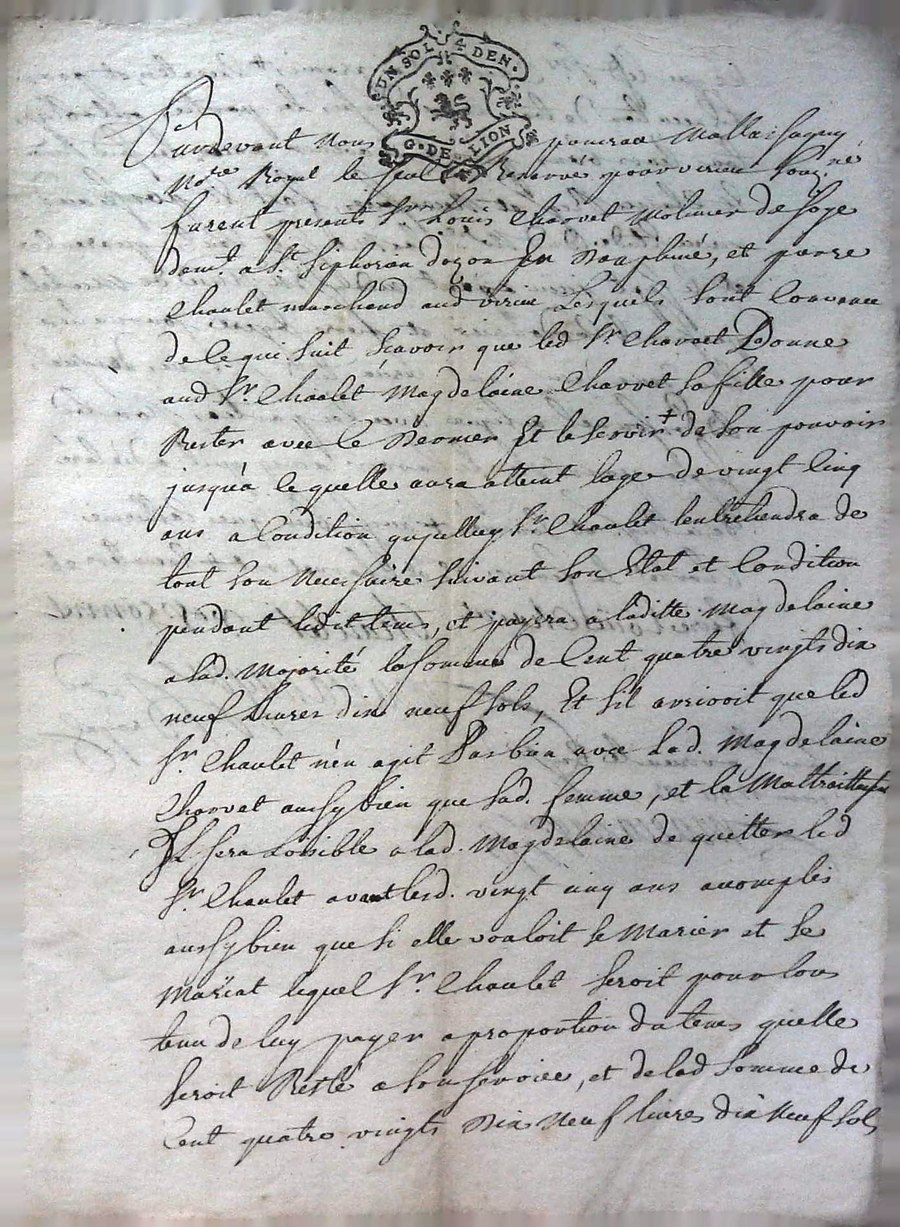 UN SOL 4 DEN.
G. DE LION
Pardevant Nous
No.re Royal le seul Reservé pour virieu souz.né
furent presents Sr Louis Charvet Molinier de soye
dem.t a St. Siphorien dozon En Dauphiné, et pierre
Chaulet marchand aud virieu Lesquels sont Convenus
de Ce qui suit sçavoir que led Sr Charvet Donne
aud Sr Chaulet Magdelaine Charvet sa fille pour
Rester avec Ce Dernier Et le servir + de son pouvoir
jusqu'a Ce quelle aura atteint lage de vingt Cinq
ans a Condition qu'jcelluy Sr Chaulet lentrétiendra de
tout son Necessaire suivant son Etat et Condition
pendant ledit tems, et payera a laditte Magdelaine
a lad. Majorité la somme de Cent quatre vingts dix
neuf Livres dix neuf sols, Et sil arrivoit que led
Sr Chaulet n'en agit Pas bien avec Lad. Magdelaine
Charvet aussy bien que sad. femme, et la Maltraittassent
Il sera Loisible a lad. Magdelaine de quitter led
Sr Chaulet avant lesd. vingt cinq ans accomplis
aussy bien que si elle vouloit se Marier et se
Mariat lequel Sr Chaulet seroit pour lors
tenu de luy payer a proportion du tems quelle
seroit Resté a son service, et de lad somme de
Cent quatre vingts Dix Neuf livres dix Neuf sols